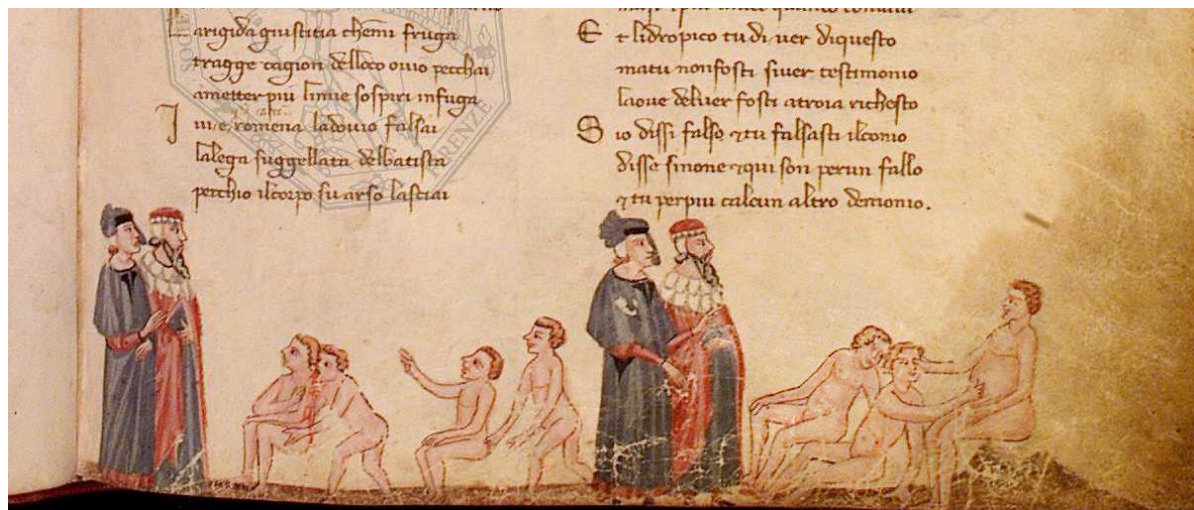 L arigida giustitia chemi fruga
tragge cagion delloco ouio pecchai
ametter piu limie sospiri infuga
I ui e romena ladouio falsai
lalega suggellata delbatista
perchio ilcorpo su arso lasciai
E t lidropico tu di uer diquesto
ma tu non fosti siuer testimonio
laoue deluer fosti a troia richesto
S io dissi falso 7 tu falsasti ilconio
disse sinone 7 qui son perun fallo
7 tu perpiu calcun altro demonio.
FIRENZE